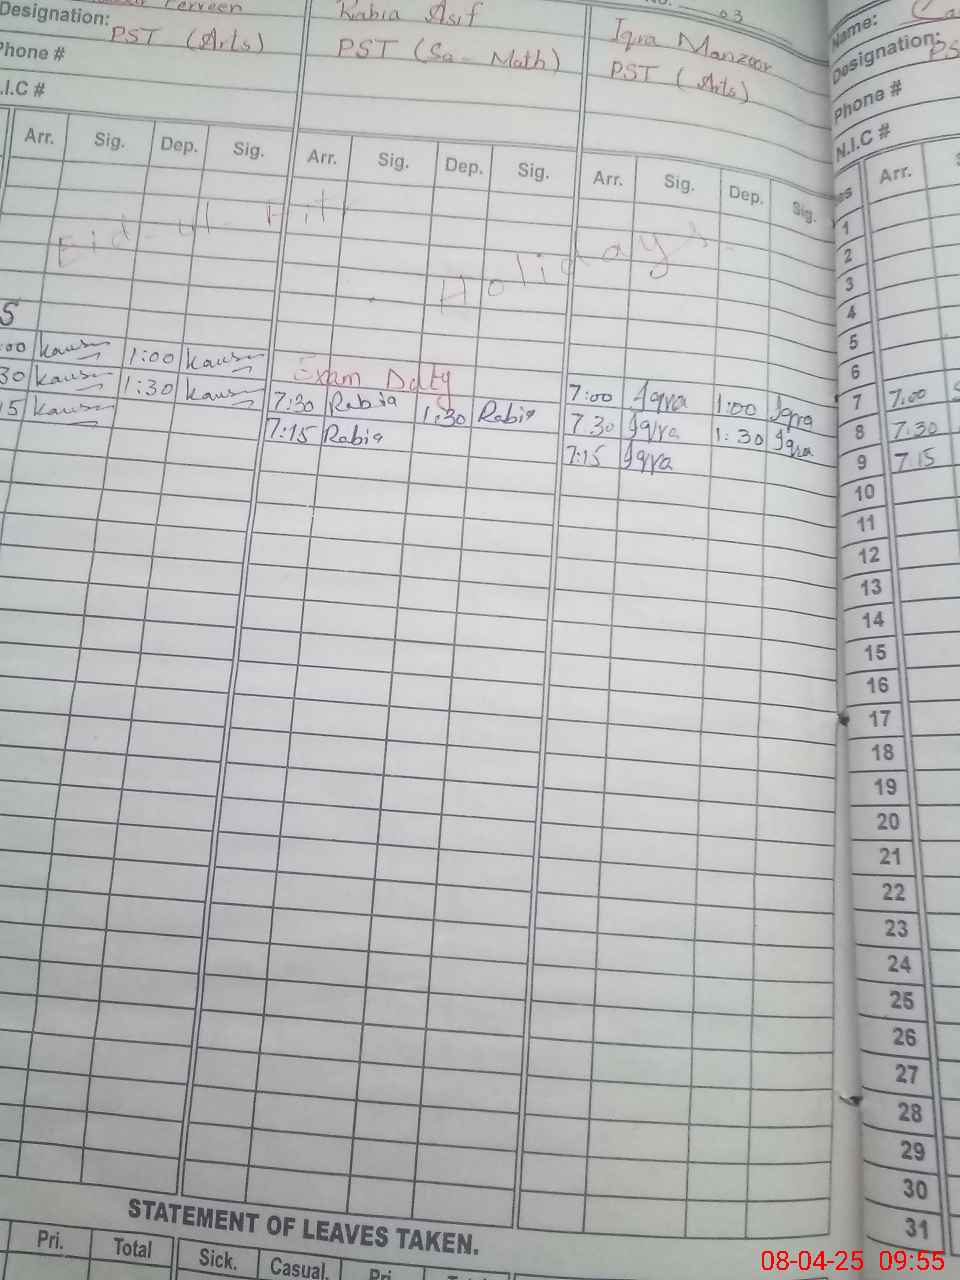 03
Designation: PST (Arts)
Rabia Asif
PST (Sc - Math)
Iqra Manzoor
PST (Arts)
Name:
Designation: PS
Phone #
Phone #
N.I.C #
.I.C #
Arr. Sig. Dep. Sig. Arr. Sig. Dep. Sig. Arr. Sig. Dep. Sig. Arr.
Eid-ul-Fitr Holidays
1
2
3
4
5
6
:00 Kausar 1:00 Kausar Exam Duty 7:00 Iqra 1:00 Iqra 7 7:00
30 Kausar 1:30 Kausar 7:30 Rabia 1:30 Rabia 7.30 Iqra 1:30 Iqra 8 7.30
15 Kausar 7:15 Rabia 7:15 Iqra 9 7.15
10
11
12
13
14
15
16
17
18
19
20
21
22
23
24
25
26
27
28
29
30
31
STATEMENT OF LEAVES TAKEN.
Pri. Total Sick. Casual. Pri.
08-04-25 09:55